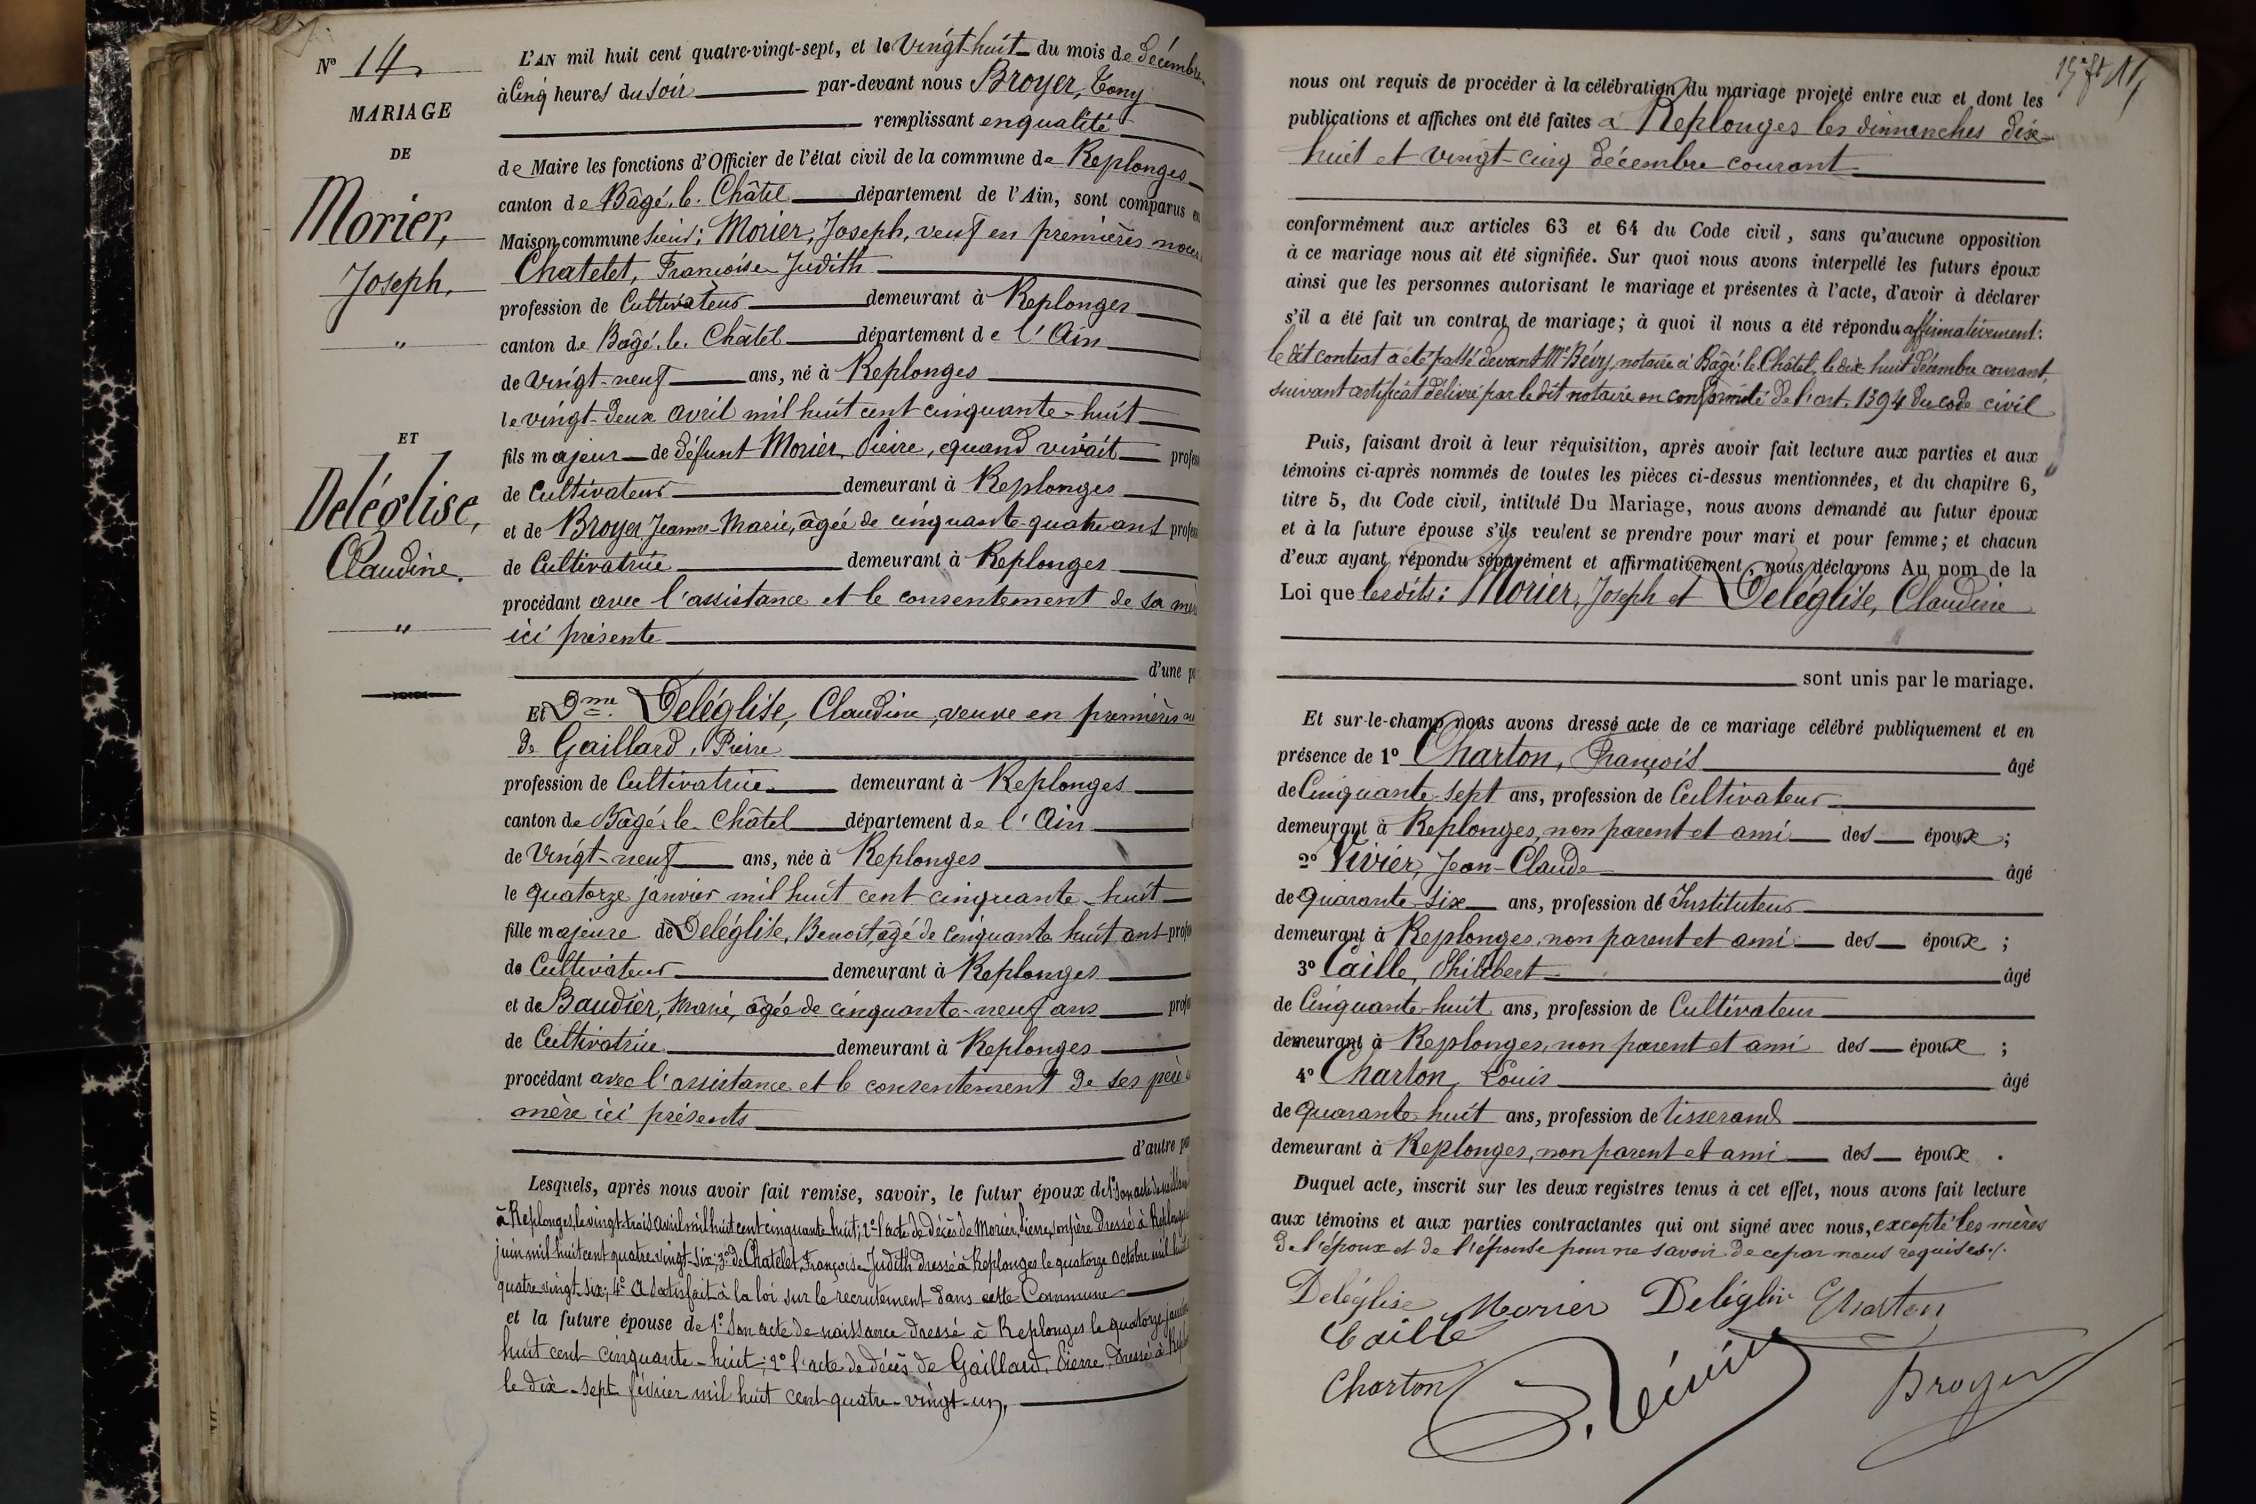 N° 14
MARIAGE
DE
Morier,
Joseph,
"
ET
Deléglise,
Claudine.
"
L'AN mil huit cent quatre-vingt-sept, et le Vingt-huit du mois de décembre
à Cinq heures du soir par-devant nous Broyer, Tony
remplissant en qualité
de Maire les fonctions d'Officier de l'état civil de la commune de Replonges
canton de Bâgé-le-Châtel département de l'Ain, sont comparus en
Maison commune sieur: Morier, Joseph, veuf en premières noces
Chatelet, Françoise Judith
profession de Cultivateur demeurant à Replonges
canton de Bâgé-le-Châtel département de l'Ain
de vingt-neuf ans, né à Replonges
le vingt-deux avril mil huit cent cinquante-huit
fils majeur de défunt Morier, Pierre, quand vivait profes
de Cultivateur demeurant à Replonges
et de Broyer, Jeanne-Marie, âgée de cinquante-quatre ans profes
de Cultivatrice demeurant à Replonges
procédant avec l'assistance et le consentement de sa mère
ici présente
d'une p
Et Dme Deléglise, Claudine, veuve en premières
de Gaillard, Pierre
profession de Cultivatrice demeurant à Replonges
canton de Bâgé-le-Châtel département de l'Ain
de Vingt-neuf ans, née à Replonges
le quatorze janvier mil huit cent cinquante-huit
fille majeure de Deléglise, Benoit, âgé de cinquante huit ans profes
de Cultivateur demeurant à Replonges
et de Baudier, Marie, âgée de cinquante-neuf ans profes
de Cultivatrice demeurant à Replonges
procédant avec l'assistance et le consentement de ses père
mère ici présents
d'autre pa
Lesquels, après nous avoir fait remise, savoir, le futur époux de 1° son acte de naissance
à Replonges, le vingt-trois avril mil huit cent cinquante huit; 2° l'acte de décès de Morier, Pierre, son père dressé à Replonges
juin mil huit cent quatre-vingt-six; 3° de Chatelet, Françoise Judith dressé à Replonges le quatorze octobre mil huit
quatre vingt-six; 4° A satisfait à la loi sur le recrutement dans cette Commune
et la future épouse de 1° Son acte de naissance dressé à Replonges le quatorze janvier
huit cent cinquante-huit; 2° l'acte de décès de Gaillard, Pierre dressé à Repl
le dix-sept février mil huit cent quatre-vingt-un,
nous ont requis de procéder à la célébration du mariage projeté entre eux et dont les
publications et affiches ont été faites à Replonges les dimanches dix-
huit et vingt-cinq décembre courant
conformément aux articles 63 et 64 du Code civil, sans qu'aucune opposition
à ce mariage nous ait été signifiée. Sur quoi nous avons interpellé les futurs époux
ainsi que les personnes autorisant le mariage et présentes à l'acte, d'avoir à déclarer
s'il a été fait un contrat de mariage; à quoi il nous a été répondu affirmativement:
le dit contrat a été passé devant Me Bévy, notaire à Bâgé-le-Châtel, le dix-huit décembre courant,
suivant certificat délivré par le dit notaire en conformité de l'art. 1394 du code civil
Puis, faisant droit à leur réquisition, après avoir fait lecture aux parties et aux
témoins ci-après nommés de toutes les pièces ci-dessus mentionnées, et du chapitre 6,
titre 5, du Code civil, intitulé Du Mariage, nous avons demandé au futur époux
et à la future épouse s'ils veulent se prendre pour mari et pour femme; et chacun
d'eux ayant répondu séparément et affirmativement, nous déclarons Au nom de la
Loi que lesdits: Morier, Joseph et Deléglise, Claudine
sont unis par le mariage.
Et sur-le-champ nous avons dressé acte de ce mariage célébré publiquement et en
présence de 1° Charton, François âgé
de Cinquante-sept ans, profession de Cultivateur
demeurant à Replonges, non parent et ami des époux;
2° Vivier, Jean-Claude âgé
de Quarante-six ans, profession de Instituteur
demeurant à Replonges, non parent et ami des époux;
3° Caille, Philibert âgé
de Cinquante-huit ans, profession de Cultivateur
demeurant à Replonges, non parent et ami des époux;
4° Charton, Louis âgé
de quarante-huit ans, profession de tisserand
demeurant à Replonges, non parent et ami des époux.
Duquel acte, inscrit sur les deux registres tenus à cet effet, nous avons fait lecture
aux témoins et aux parties contractantes qui ont signé avec nous, excepté les mères
de l'époux et de l'épouse pour ne savoir de ce par nous requises./.
Deléglise Morier Deléglise Charton
Caille
Charton J. Vivier Broyer